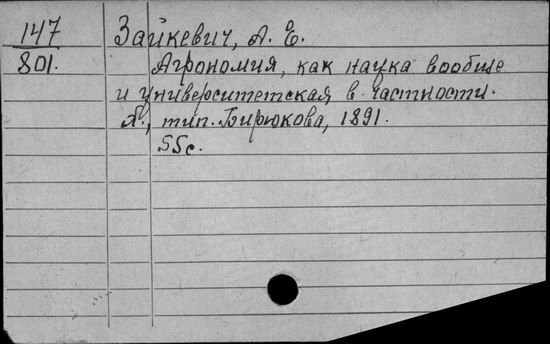 147
801.
Зайкевич, А. Е.
Агрономия, как наука вообще
и университетская в частности.
тип. Бирюкова, 1891.
55с.